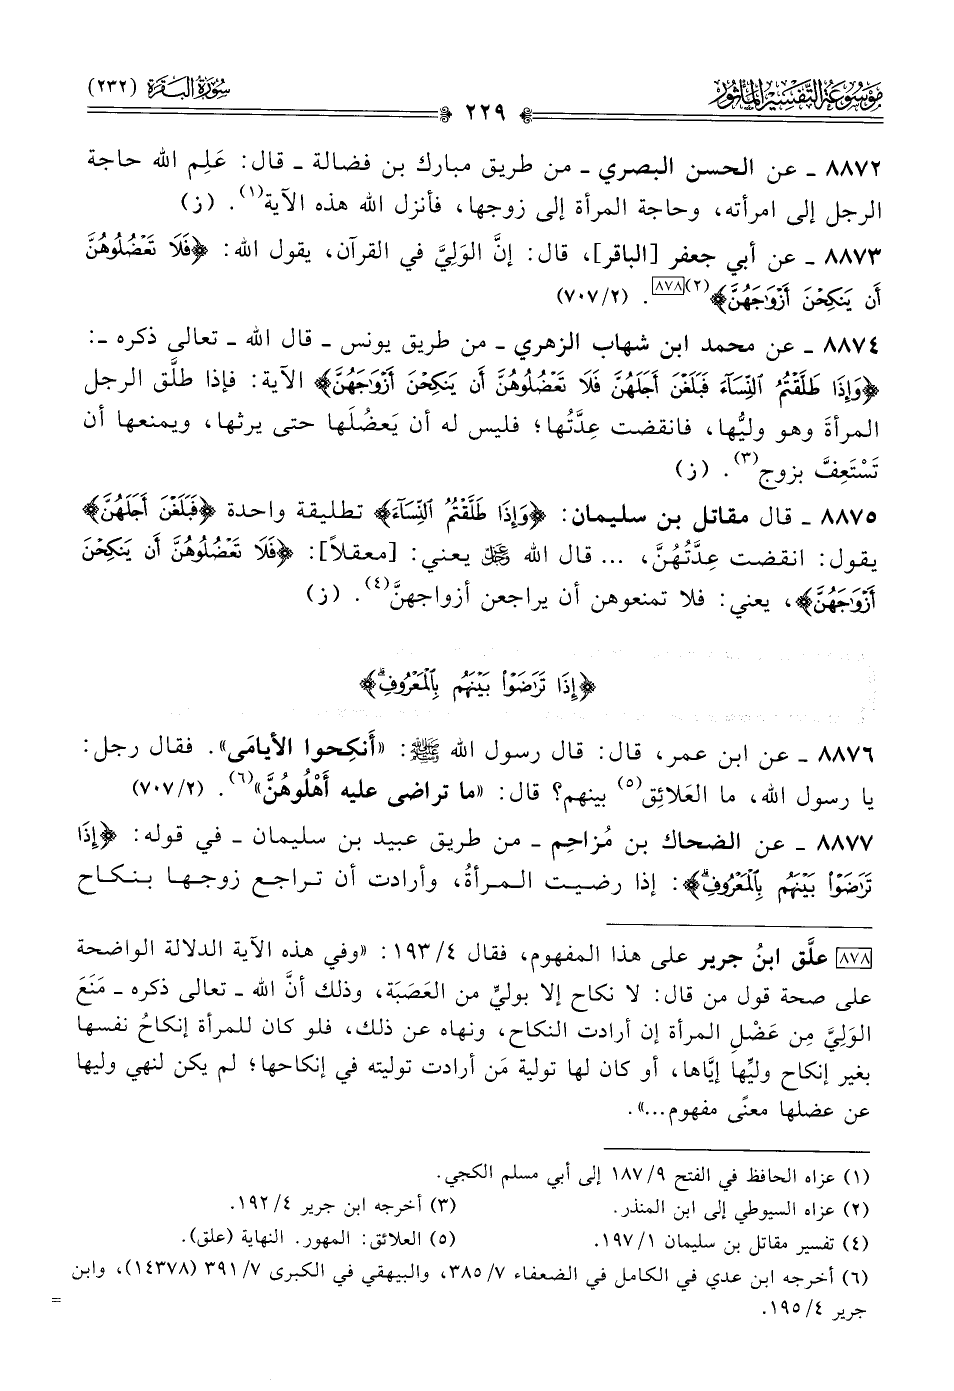 مَوْسُوعَة التَّفْسِير المَأْثُور
سُورَةُ البَقَرَة (٢٣٢)
٢٢٩
٨٨٧٢ ـ عن الحسن البصري ـ من طريق مبارك بن فضالة ـ قال: عَلِم الله حاجة
الرجل إلى امرأته، وحاجة المرأة إلى زوجها، فأنزل الله هذه الآية(١). (ز)
٨٨٧٣ ـ عن أبي جعفر [الباقر]، قال: إنَّ الوَلِيَّ في القرآن، يقول الله: ﴿فَلَا تَعْضُلُوهُنَّ
أَن يَنكِحْنَ أَزْوَٰجَهُنَّ﴾(٢)[٨٧٨]. (٧٠٧/٢)
٨٨٧٤ ـ عن محمد ابن شهاب الزهري ـ من طريق يونس ـ قال الله ـ تعالى ذكره ـ:
﴿وَإِذَا طَلَّقْتُمُ ٱلنِّسَآءَ فَبَلَغْنَ أَجَلَهُنَّ فَلَا تَعْضُلُوهُنَّ أَن يَنكِحْنَ أَزْوَٰجَهُنَّ﴾ الآية: فإذا طلَّق الرجل
المرأةَ وهو وليُّها، فانقضت عِدَّتُها؛ فليس له أن يَعضُلَها حتى يرثها، ويمنعها أن
تَسْتَعِفَّ بزوج(٣). (ز)
٨٨٧٥ ـ قال مقاتل بن سليمان: ﴿وَإِذَا طَلَّقْتُمُ ٱلنِّسَآءَ﴾ تطليقة واحدة ﴿فَبَلَغْنَ أَجَلَهُنَّ﴾
يقول: انقضت عِدَّتُهُنَّ، ... قال الله ﷿ يعني: [معقلاً]: ﴿فَلَا تَعْضُلُوهُنَّ أَن يَنكِحْنَ
أَزْوَٰجَهُنَّ﴾، يعني: فلا تمنعوهن أن يراجعن أزواجهنَّ(٤). (ز)
﴿إِذَا تَرَٰضَوْا۟ بَيْنَهُم بِٱلْمَعْرُوفِ ۗ﴾
٨٨٧٦ ـ عن ابن عمر، قال: قال رسول الله ﷺ: «أَنكِحوا الأيامَى». فقال رجل:
يا رسول الله، ما العَلائِق(٥) بينهم؟ قال: «ما تراضى عليه أَهْلُوهُنَّ»(٦). (٧٠٧/٢)
٨٨٧٧ ـ عن الضحاك بن مُزاحِم ـ من طريق عبيد بن سليمان ـ في قوله: ﴿إِذَا
تَرَٰضَوْا۟ بَيْنَهُم بِٱلْمَعْرُوفِ ۗ﴾: إذا رضيت المرأةُ، وأرادت أن تراجع زوجها بنكاح
[٨٧٨] علَّق ابنُ جرير على هذا المفهوم، فقال ١٩٣/٤: «وفي هذه الآية الدلالة الواضحة
على صحة قول من قال: لا نكاح إلا بوليٍّ من العَصَبَة، وذلك أنَّ الله ـ تعالى ذكره ـ مَنَعَ
الوَلِيَّ مِن عَضْلِ المرأة إن أرادت النكاح، ونهاه عن ذلك، فلو كان للمرأة إنكاحُ نفسها
بغير إنكاح وليِّها إيَّاها، أو كان لها تولية مَن أرادت توليته في إنكاحها؛ لم يكن لنهي وليها
عن عضلها معنًى مفهوم...».
(١) عزاه الحافظ في الفتح ١٨٧/٩ إلى أبي مسلم الكجي.
(٢) عزاه السيوطي إلى ابن المنذر. (٣) أخرجه ابن جرير ١٩٢/٤.
(٤) تفسير مقاتل بن سليمان ١٩٧/١. (٥) العلائق: المهور. النهاية (علق).
(٦) أخرجه ابن عدي في الكامل في الضعفاء ٣٨٥/٧، والبيهقي في الكبرى ٣٩١/٧ (١٤٣٧٨)، وابن
جرير ١٩٥/٤. =